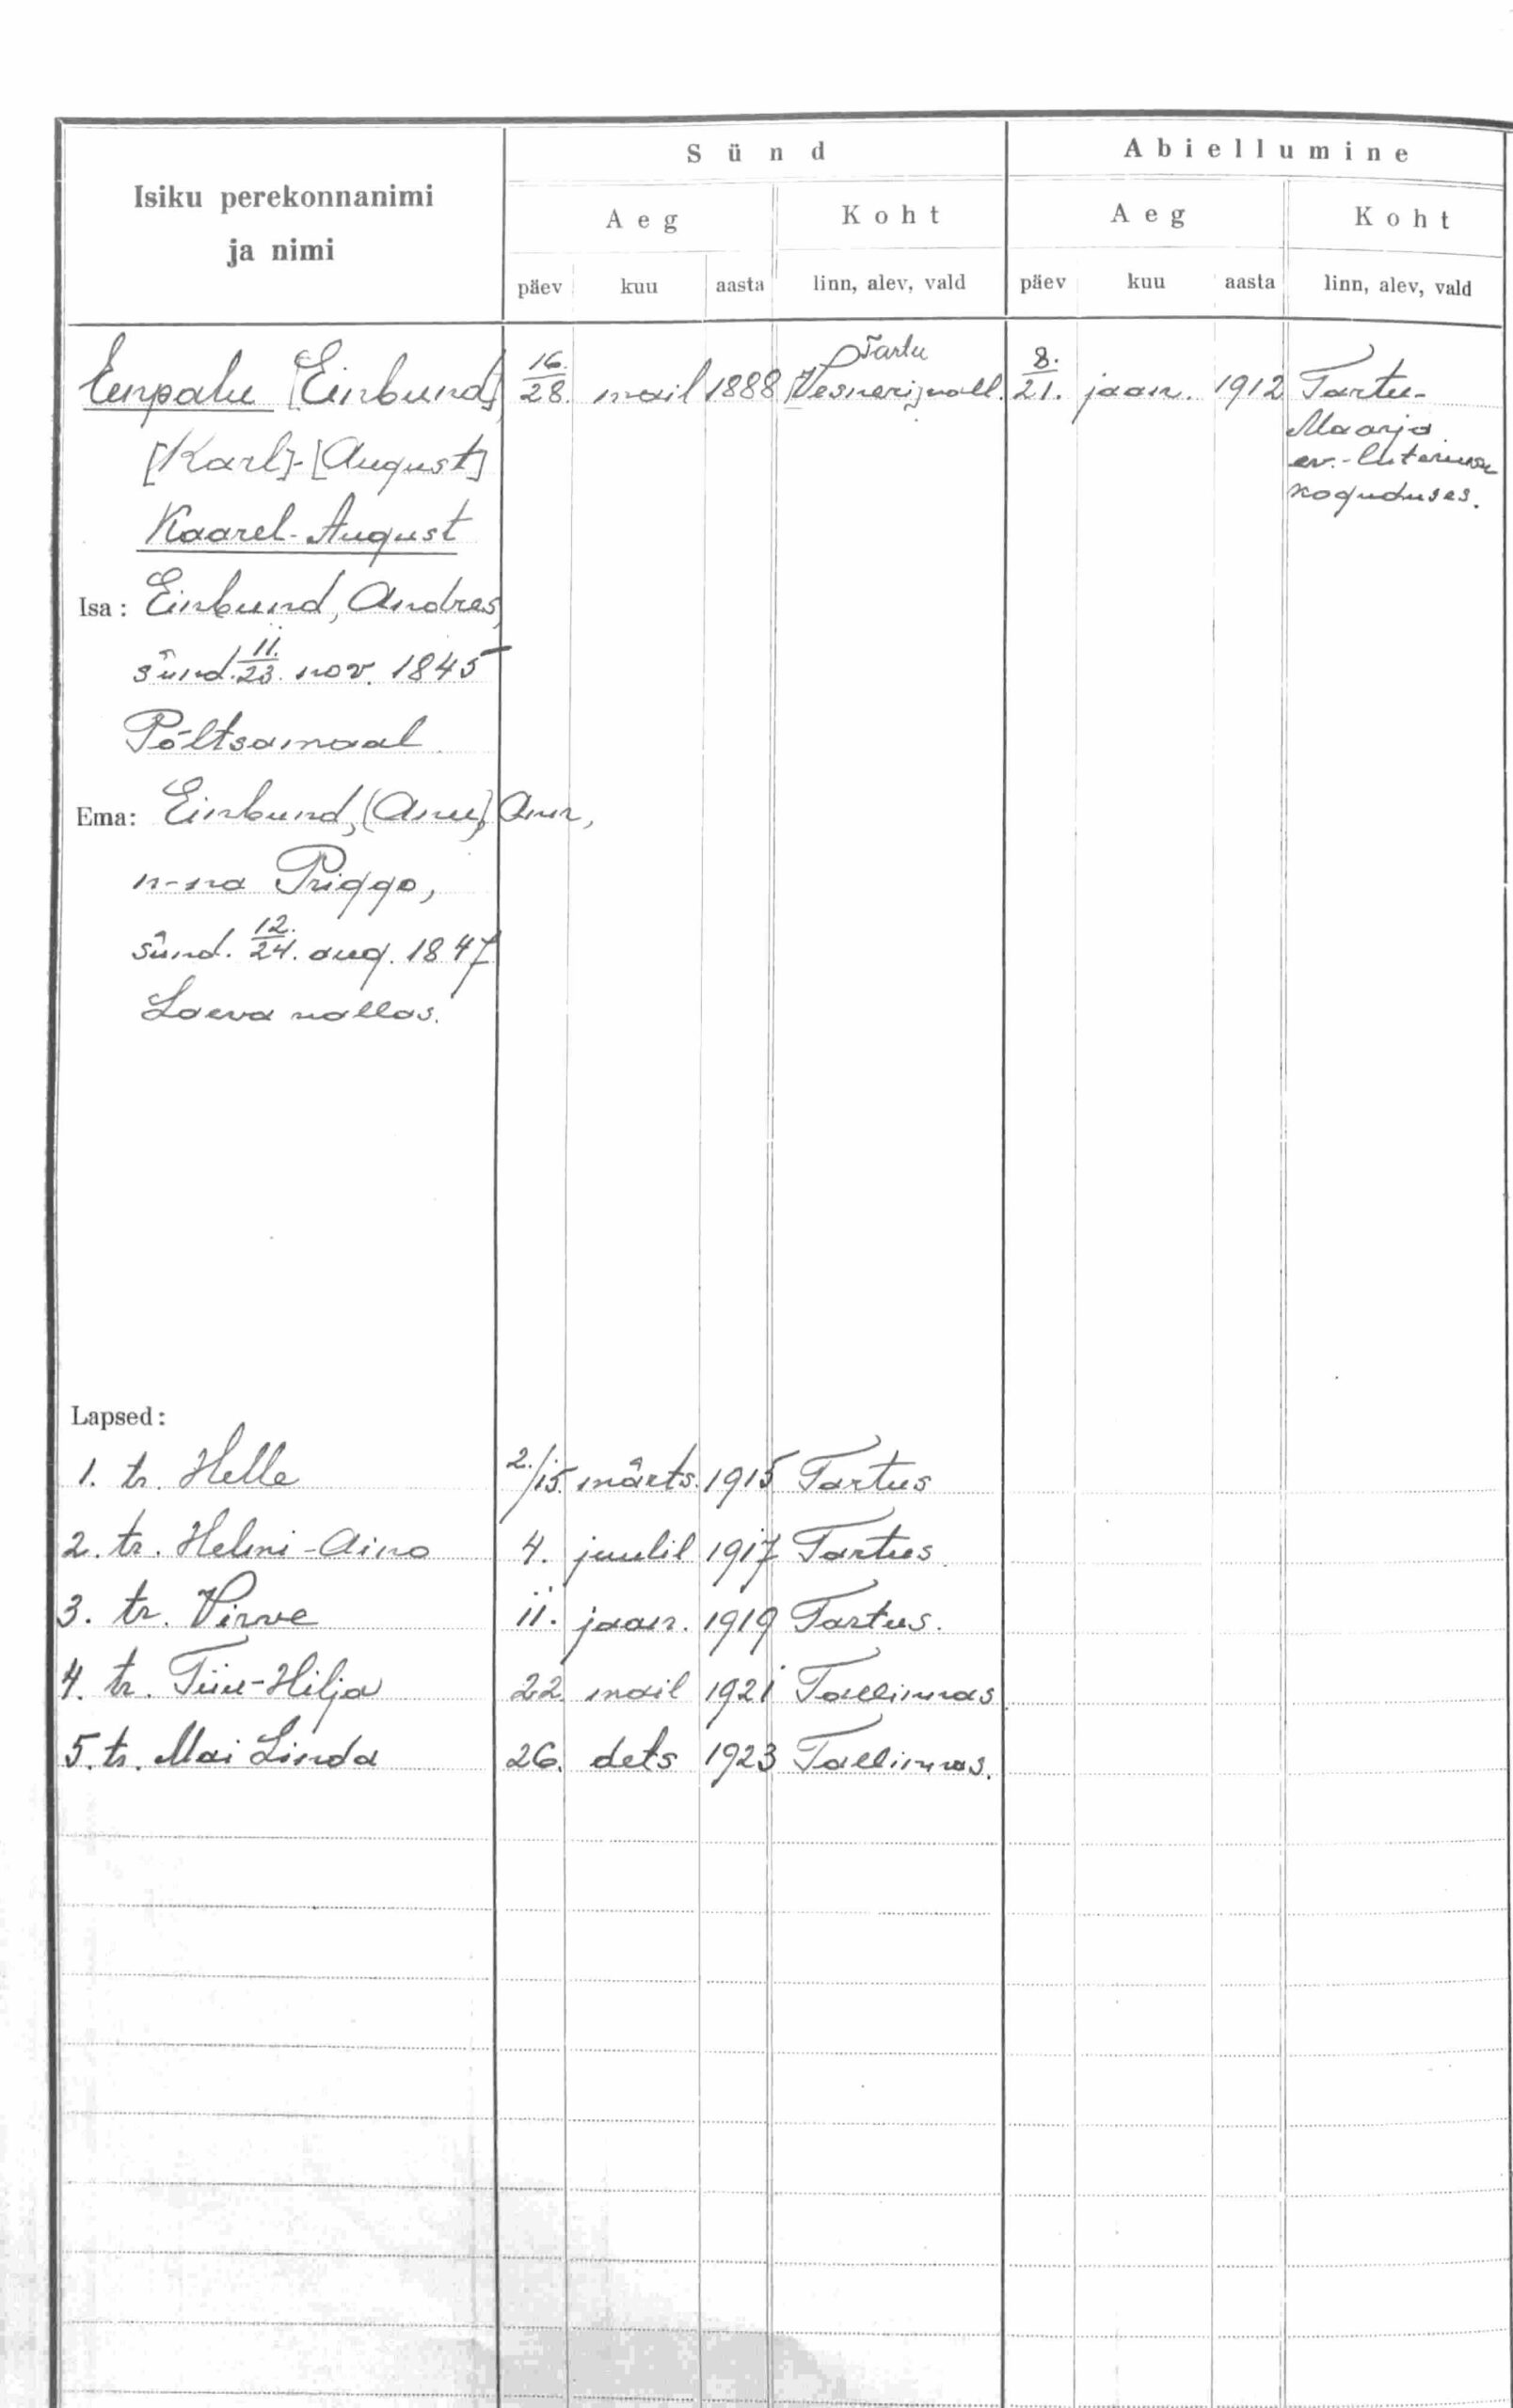 Sünd
Abiellumine
Isiku perekonnanimi
ja nimi
Aeg
Koht
Aeg
Koht
päev kuu aasta linn, alev, vald päev kuu aasta linn, alev, vald
Eenpalu [Einbund] 16./28. mail 1888 Tartu Vesneri vall. 8./21. jaan. 1912 Tartu-
Maarja
[Karl]-[August] ev.-luteriusu
koguduses.
Kaarel-August
Isa: Einbund, Andres,
sünd. 11./23. nov. 1845
Põltsamaal
Ema: Einbund, [Anu], Ann,
n-na Priggo,
sünd. 12./24. aug. 1847
Laeva vallas.
Lapsed:
1. tr. Helle 2./15. märts. 1915 Tartus
2. tr. Helmi-Aino 4. juulil 1917 Tartus.
3. tr. Virve 11. jaan. 1919 Tartus.
4. tr. Tiiu-Hilja 22. mail 1921 Tallinnas.
5. tr. Mai Linda 26. dets 1923 Tallinnas.